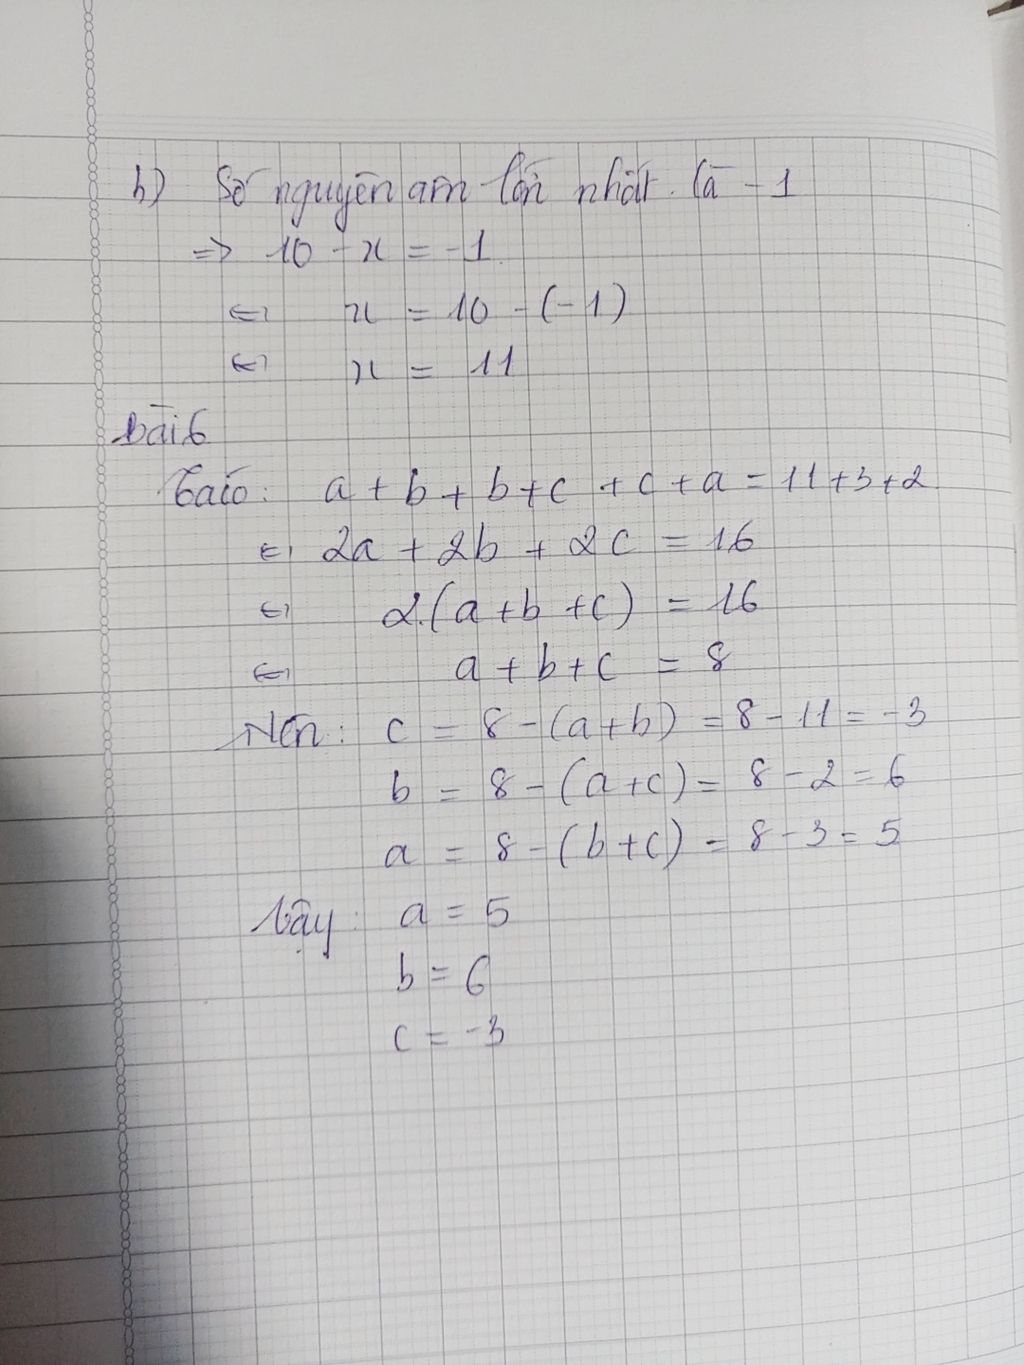 b) Số nguyên âm lớn nhất là -1
=> 10 - x = -1
<=> x = 10 - (-1)
<=> x = 11
bài 6
Ta có: a + b + b + c + c + a = 11 + 3 + 2
<=> 2a + 2b + 2c = 16
<=> 2.(a + b + c) = 16
<=> a + b + c = 8
Nên: c = 8 - (a + b) = 8 - 11 = -3
b = 8 - (a + c) = 8 - 2 = 6
a = 8 - (b + c) = 8 - 3 = 5
Vậy: a = 5
b = 6
c = -3